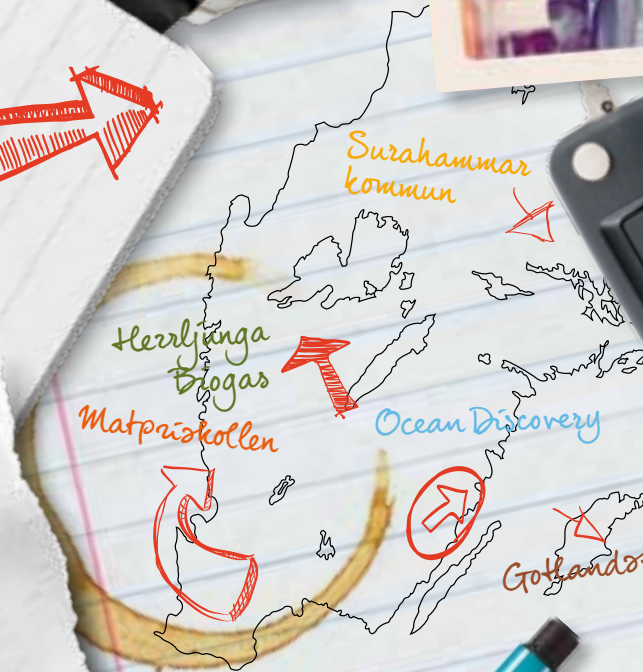 Surahammar
kommun
Herrljunga
Biogas
Matpriskollen
Ocean Discovery